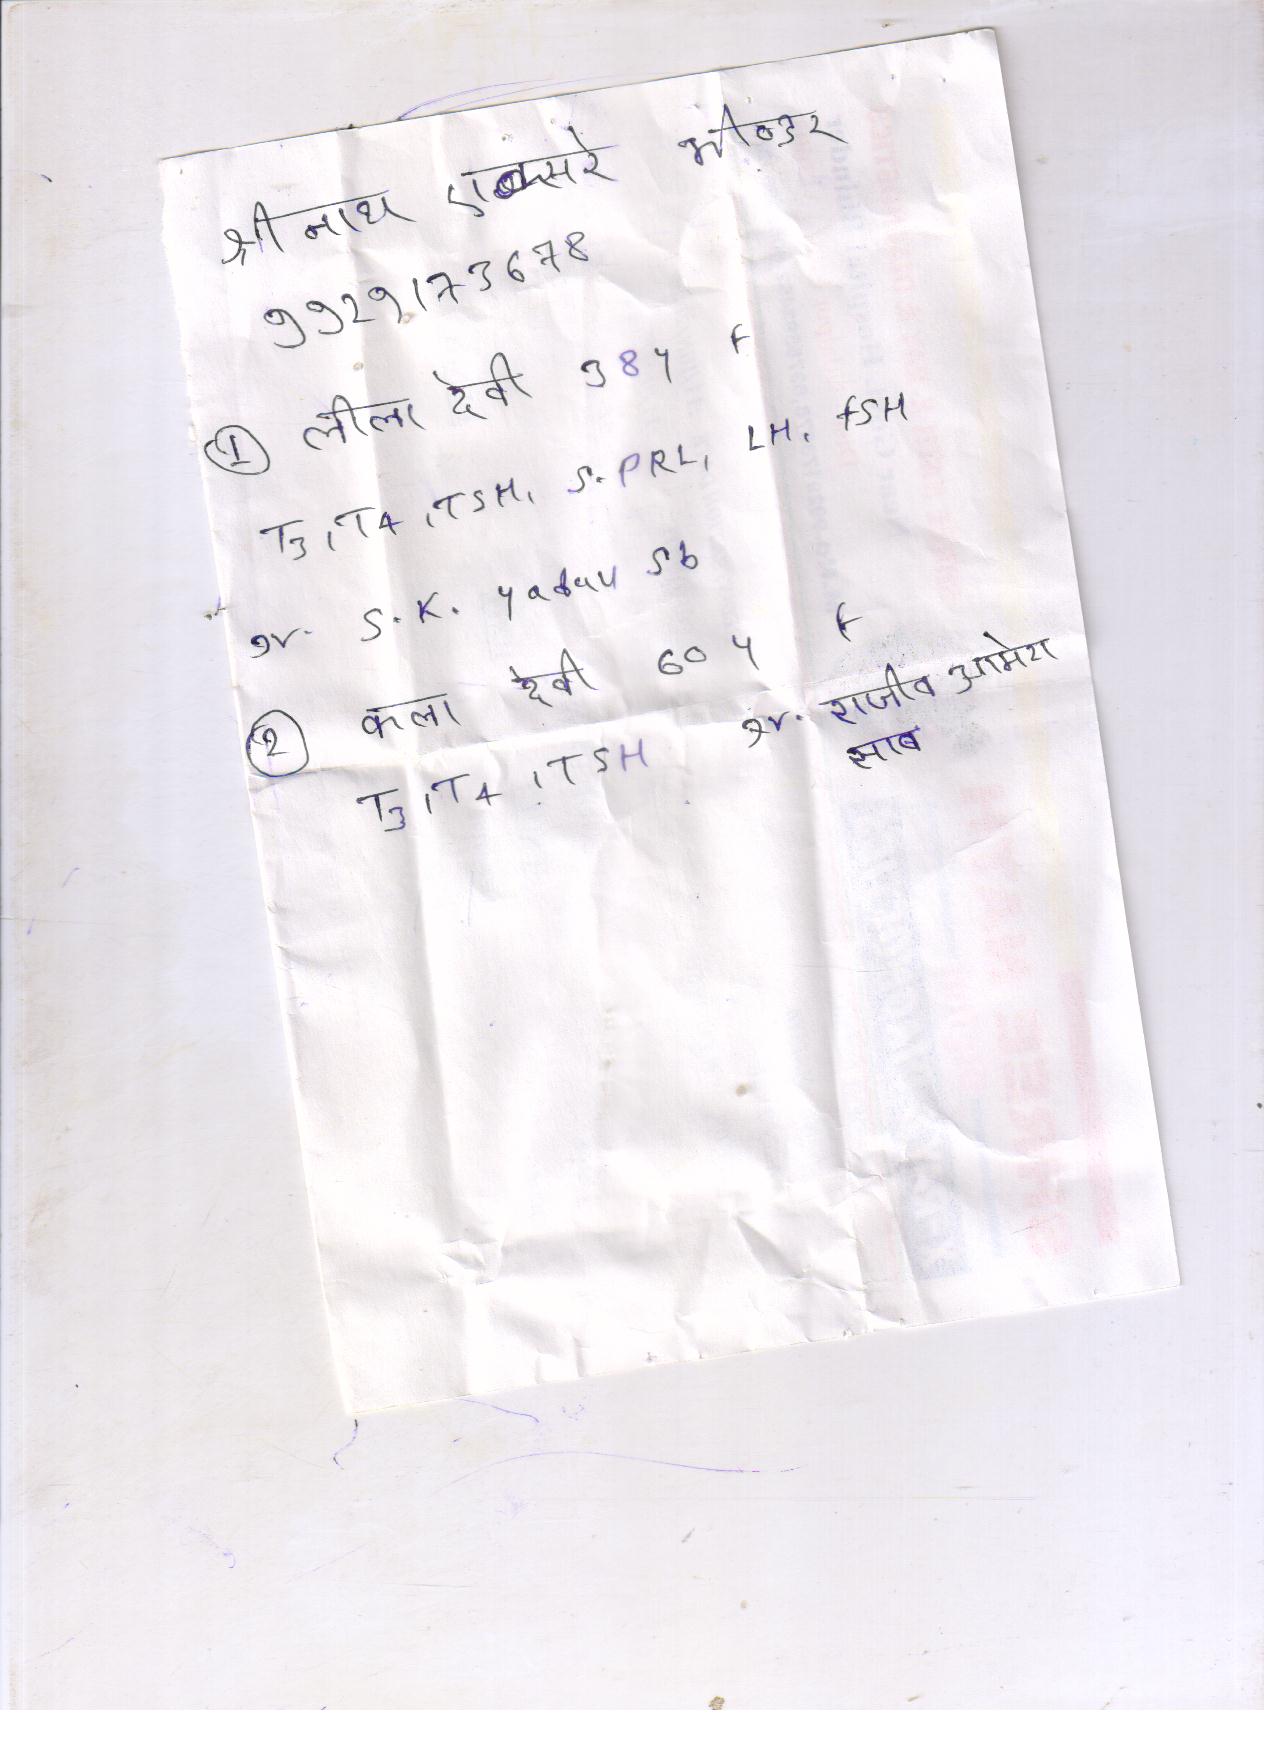 श्री नाथ एक्सरे भीण्डर
9929173678
① लीला देवी 38 Y F
T3, T4, TSH, S.PRL, LH, FSH
Dr. S.K. Yadav Sb
② कला देवी 60 Y F
T3, T4, TSH Dr. राजीव आमेरा
साब